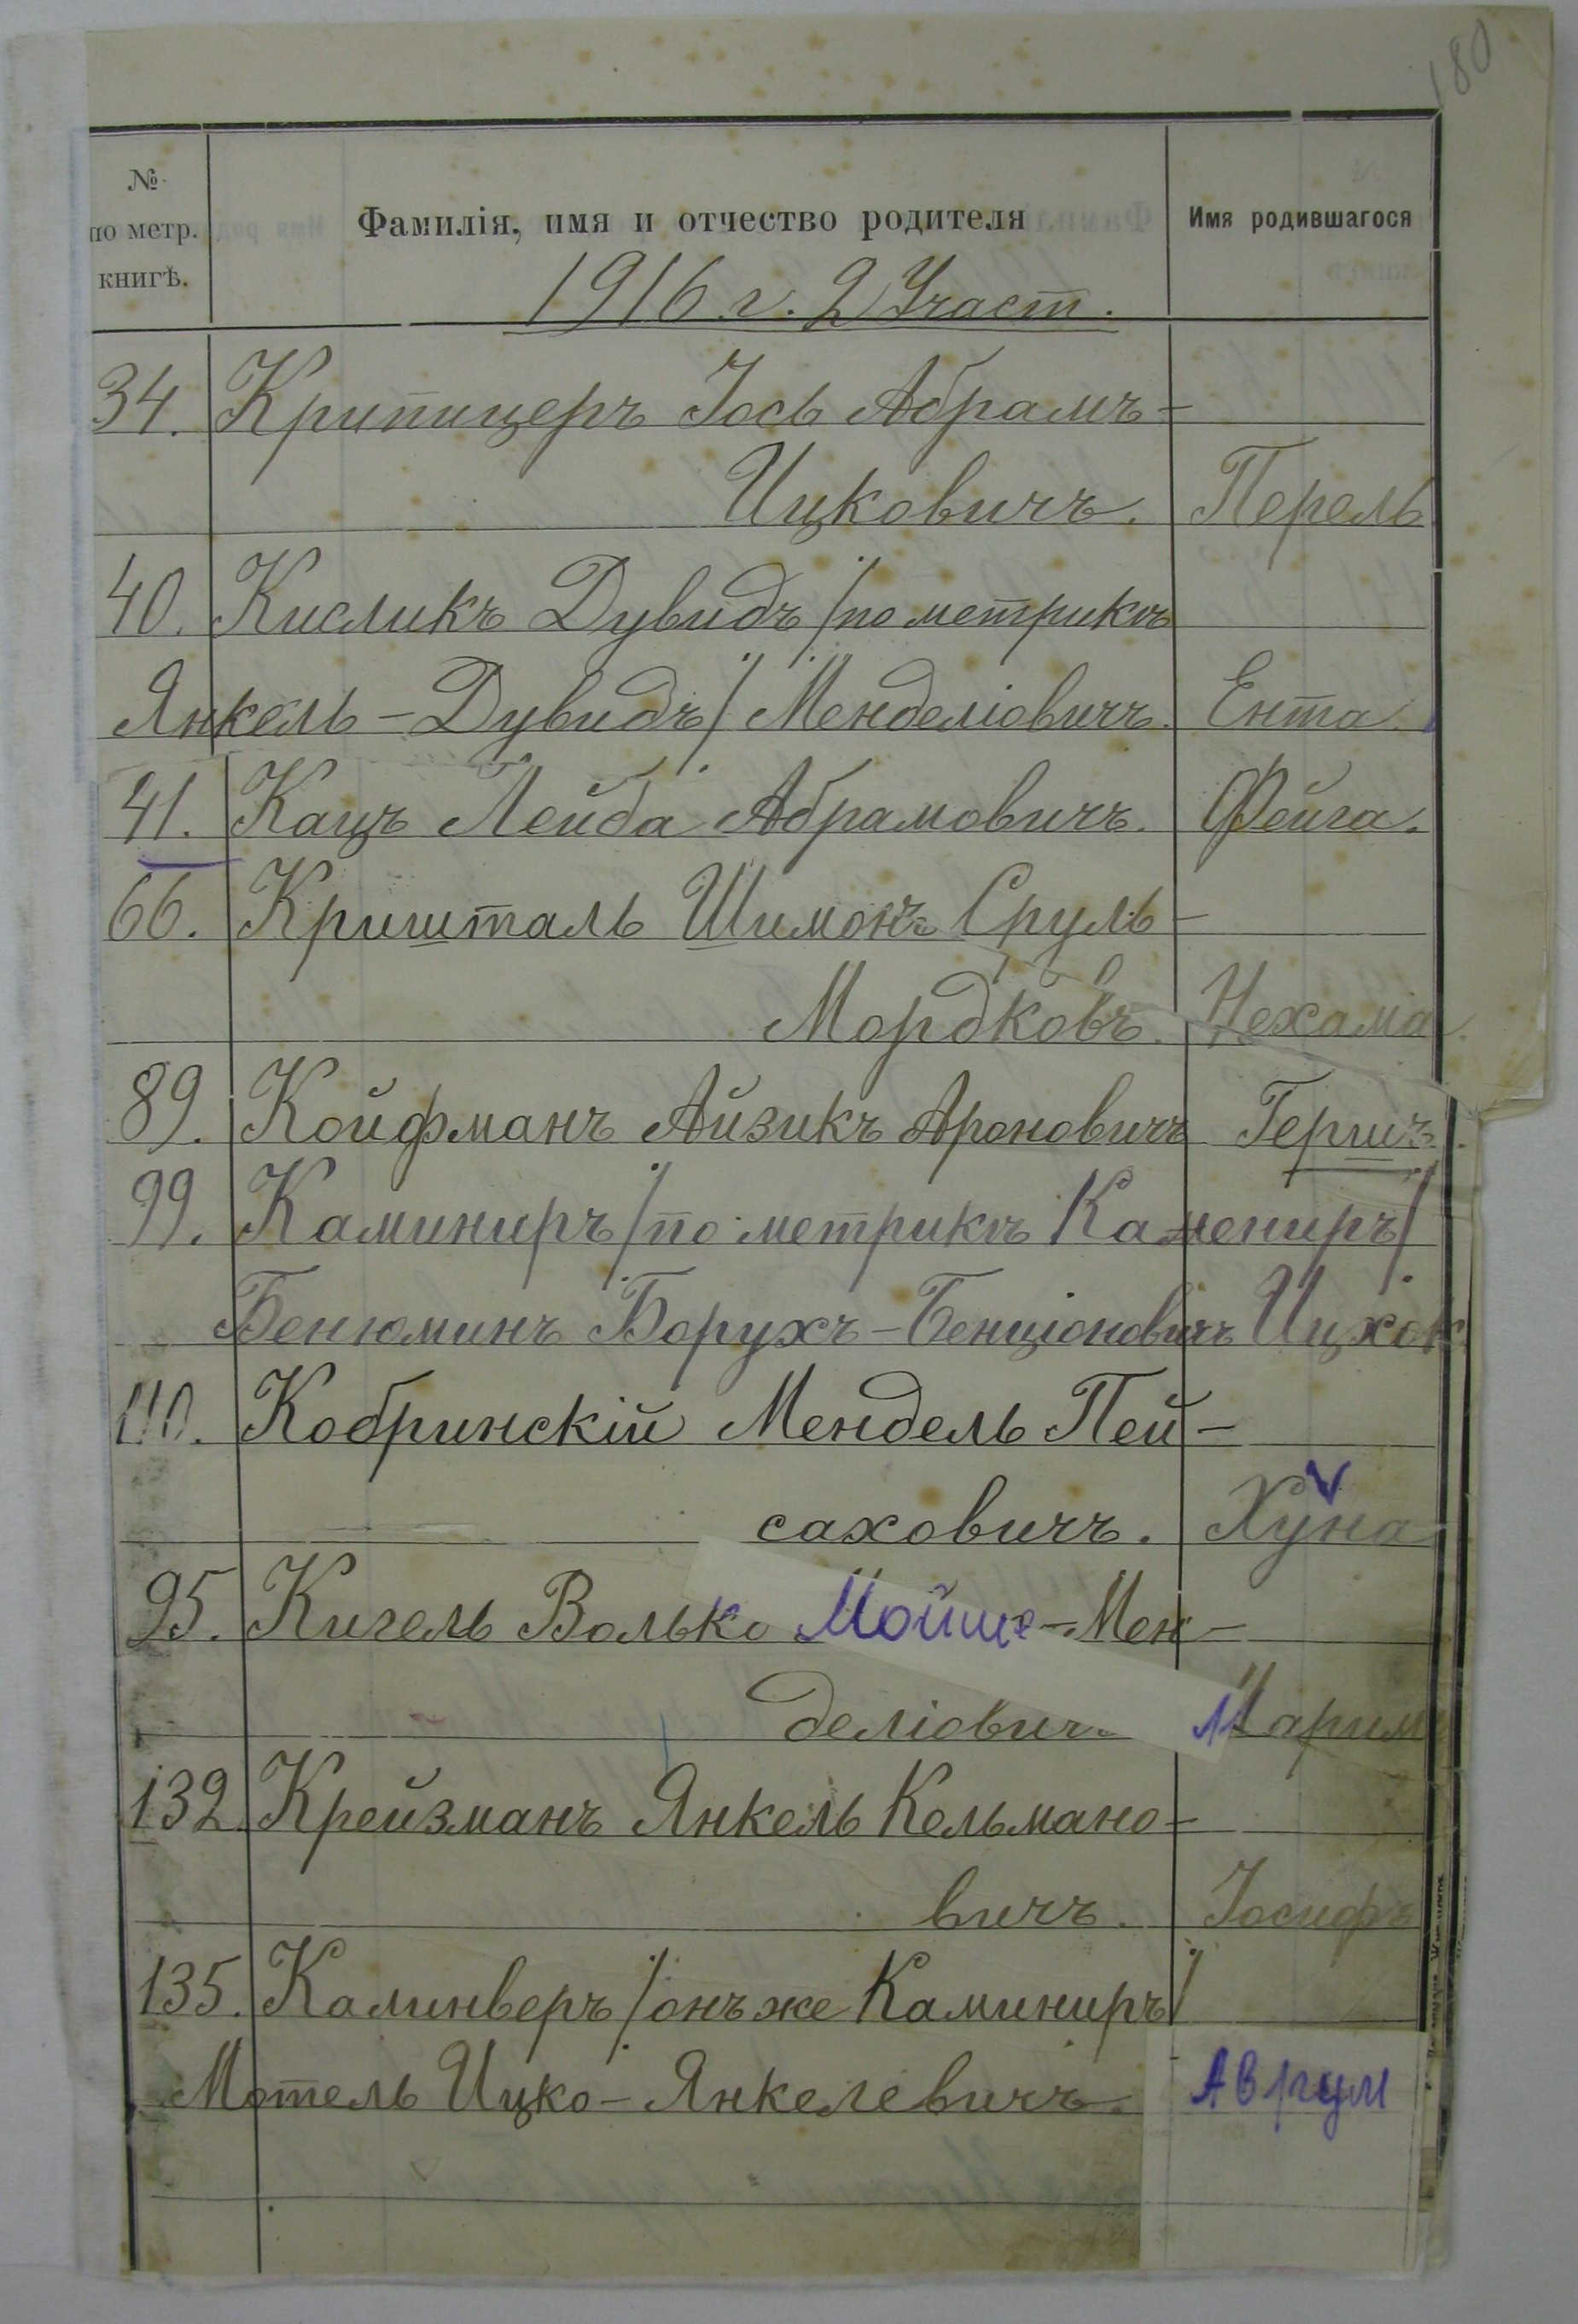 180
№ по метр. книгѣ. Фамилія, имя и отчество родителя Имя родившагося
1916 г. 2 Участ.
34. Крипицеръ Іось Абрамъ-
Ицковичъ. Перель
40. Кисликъ Дувидъ /по метрикѣ
Янкель-Дувидъ/ Менделіовичъ. Ента.
41. Кацъ Лейба Абрамовичъ. Фейга.
66. Кришталь Шимонъ Сруль-
Мордковъ. Нехама
89. Койфманъ Айзикъ Ароновичъ Гершъ.
99. Каминиръ /по метрикѣ Камениръ/
Бенюминъ Борухъ-Бенціоновичъ Ицхок
110. Кобринскій Мендель Пей-
саховичъ. Хуна
95. Кигель Волько Мойше-Мен-
деліович Марим
132. Крейзманъ Янкель Кельмано-
вичъ. Іосифъ
135. Калинверъ /онъ же Каминиръ/
Мотель Ицко-Янкелевичъ. Аврум